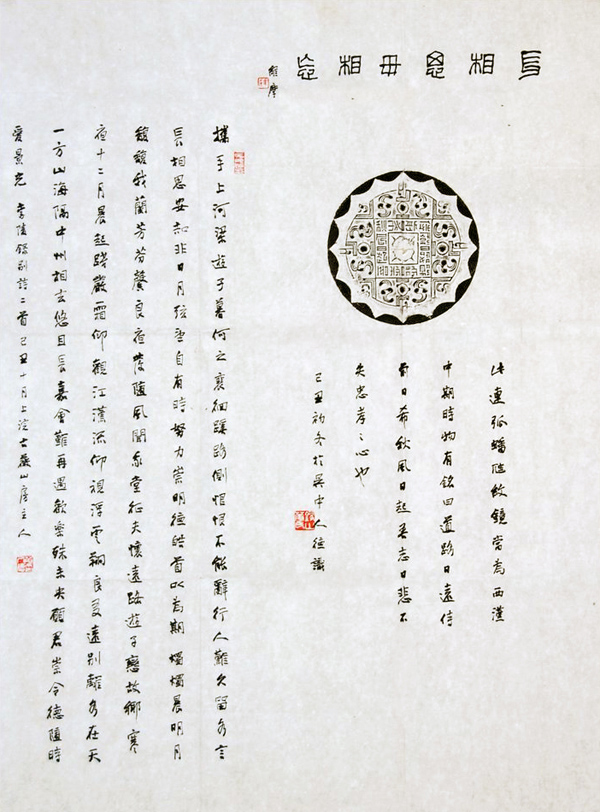 長相思毋相忘
維摩
此連弧蟠螭紋鏡當為西漢
中期時物有銘曰道路日遠侍
前日希秋風日起吾志日悲不
失忠孝之心也
己丑初冬於吳中人徒識
攜手上河梁遊子暮何之裵徊蹊路側悢悢不能辭行人難久留各言
長相思安知非日月弦望自有時努力崇明德皓首以為期燭燭晨明月
馥馥我蘭芳芬馨良夜發隨風聞我堂征夫懷遠路遊子戀故鄉寒
夜十二月晨起踐嚴霜仰觀江漢流仰視浮雲翔良友遠別離各在天
一方山海隔中州相去悠且長嘉會難再遇歡樂殊未央願君崇令德隨時
愛景光 李陵錄別詩二首己丑十月上浣山房主人